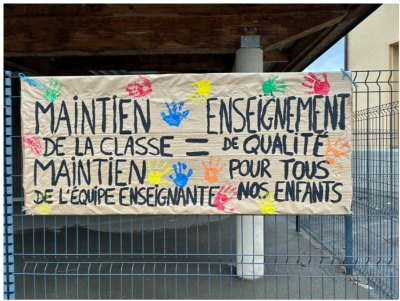 MAINTIEN
DE LA CLASSE
MAINTIEN
DE L'ÉQUIPE ENSEIGNANTE
=
ENSEIGNEMENT
DE QUALITÉ
POUR TOUS
NOS ENFANTS